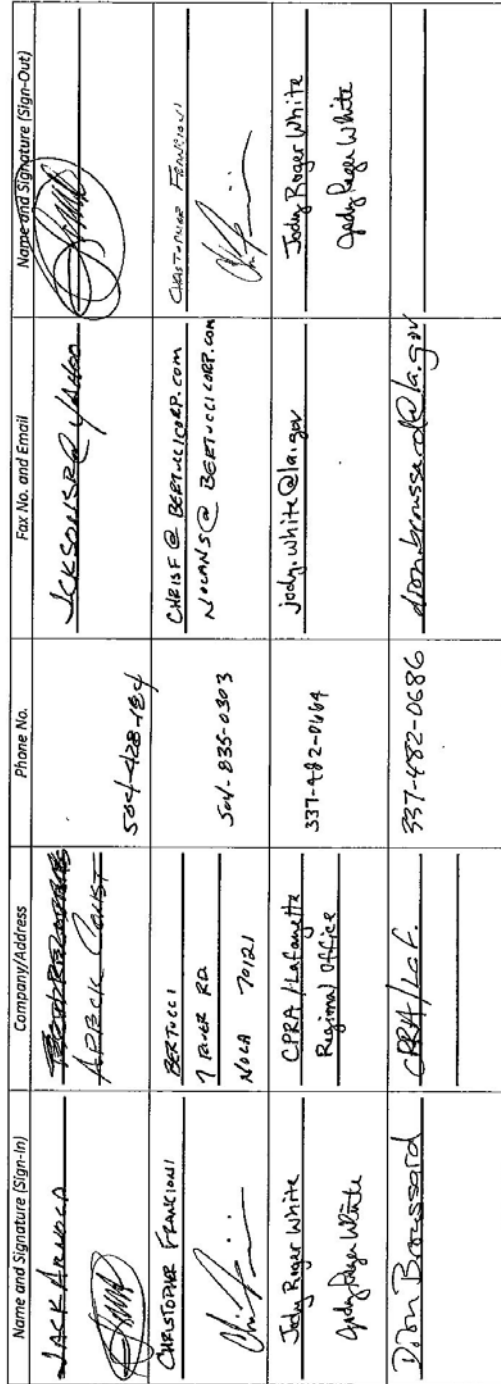 Name and Signature (Sign-In)
Company/Address
Phone No.
Fax No. and Email
Name and Signature (Sign-Out)
JACK
APBCK CONST
BERTUCCI
CHRISTOPHER FRANCIONI
7 RIVER RD
NOLA 70121
504-835-0303
CHRISF@BERTUCCICORP.COM
NOLANS@BERTUCCICORP.COM
CHRISTOPHER FRANCIONI
Jody Roger White
Jody Roger White
CPRA/Lafayette
Regional Office
337-482-0664
jody.white@la.gov
Jody Roger White
Jody Roger White
Dion Broussard
CPRA/Laf.
337-482-0686
dion.broussard@la.gov